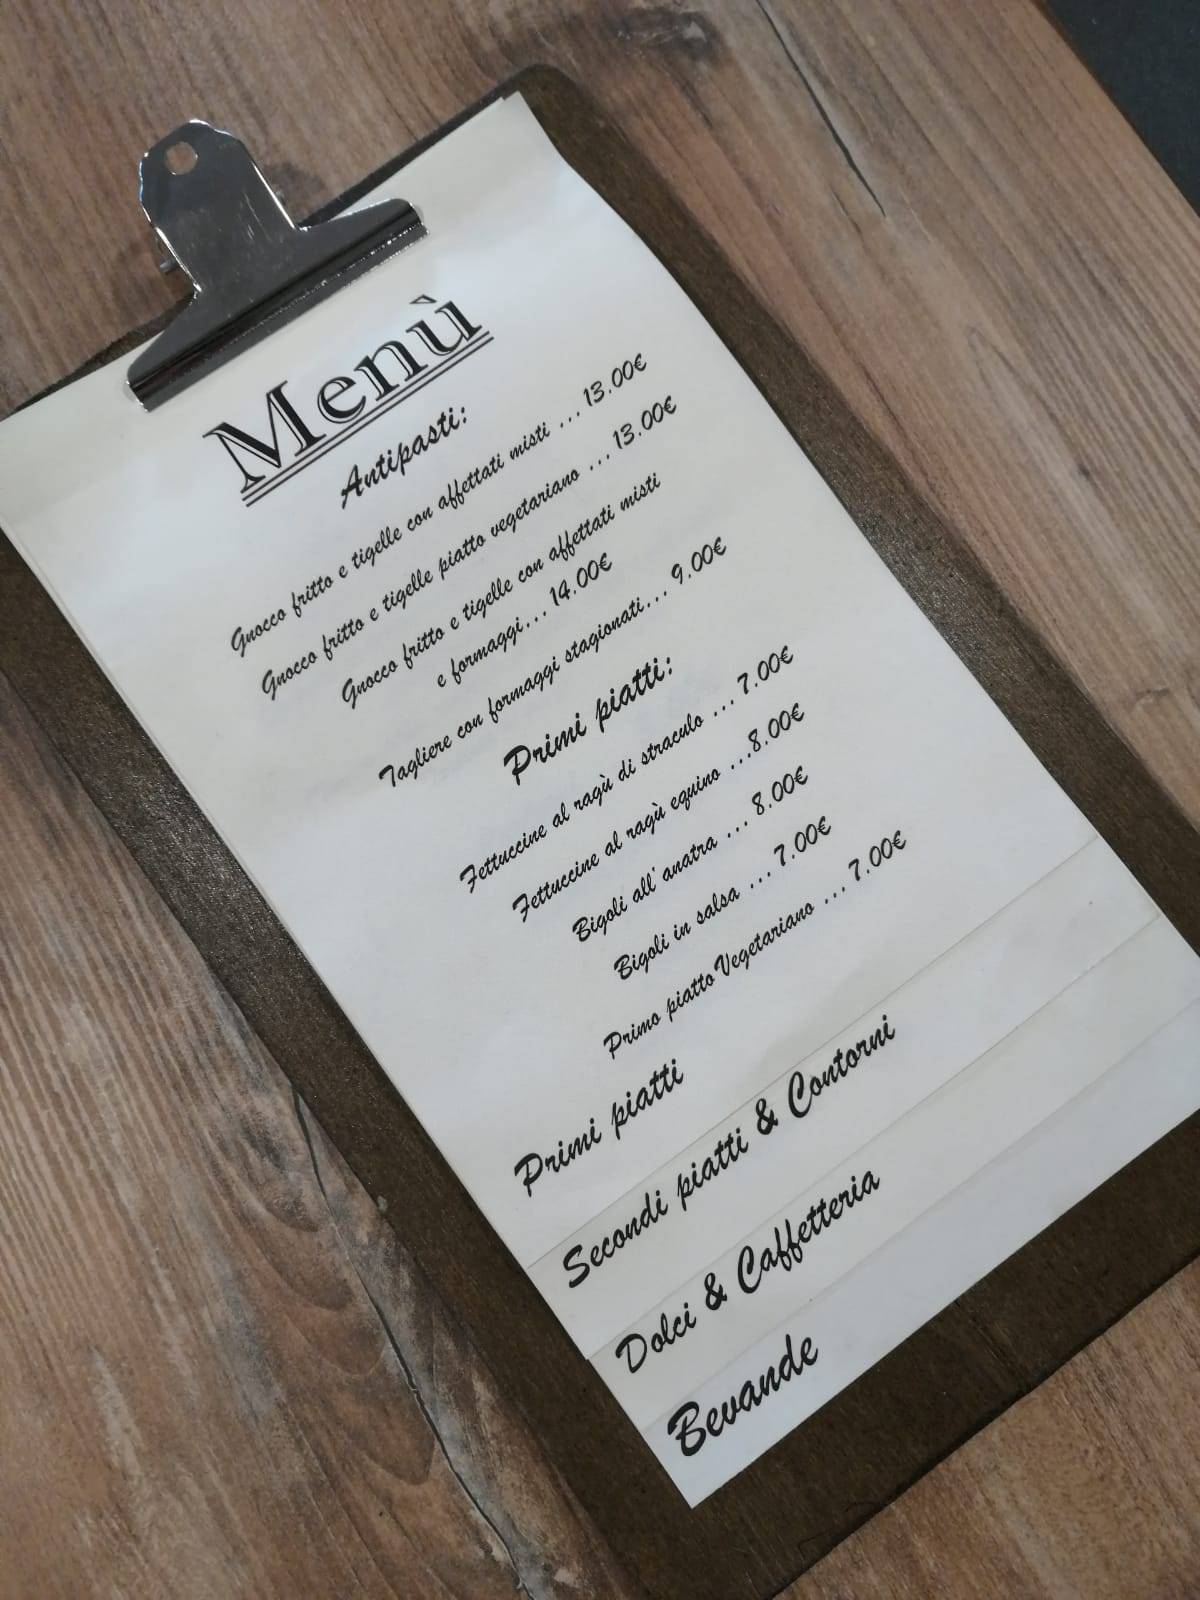 Menù
Antipasti:
Gnocco fritto e tigelle con affettati misti ... 13.00€
Gnocco fritto e tigelle piatto vegetariano ... 13.00€
Gnocco fritto e tigelle con affettati misti
e formaggi... 14.00€
Tagliere con formaggi stagionati... 9.00€
Primi piatti:
Fettuccine al ragù di straculo ... 7.00€
Fettuccine al ragù equino ...8.00€
Bigoli all'anatra ... 8.00€
Bigoli in salsa ... 7.00€
Primo piatto Vegetariano ... 7.00€
Primi piatti
Secondi piatti & Contorni
Dolci & Caffetteria
Bevande